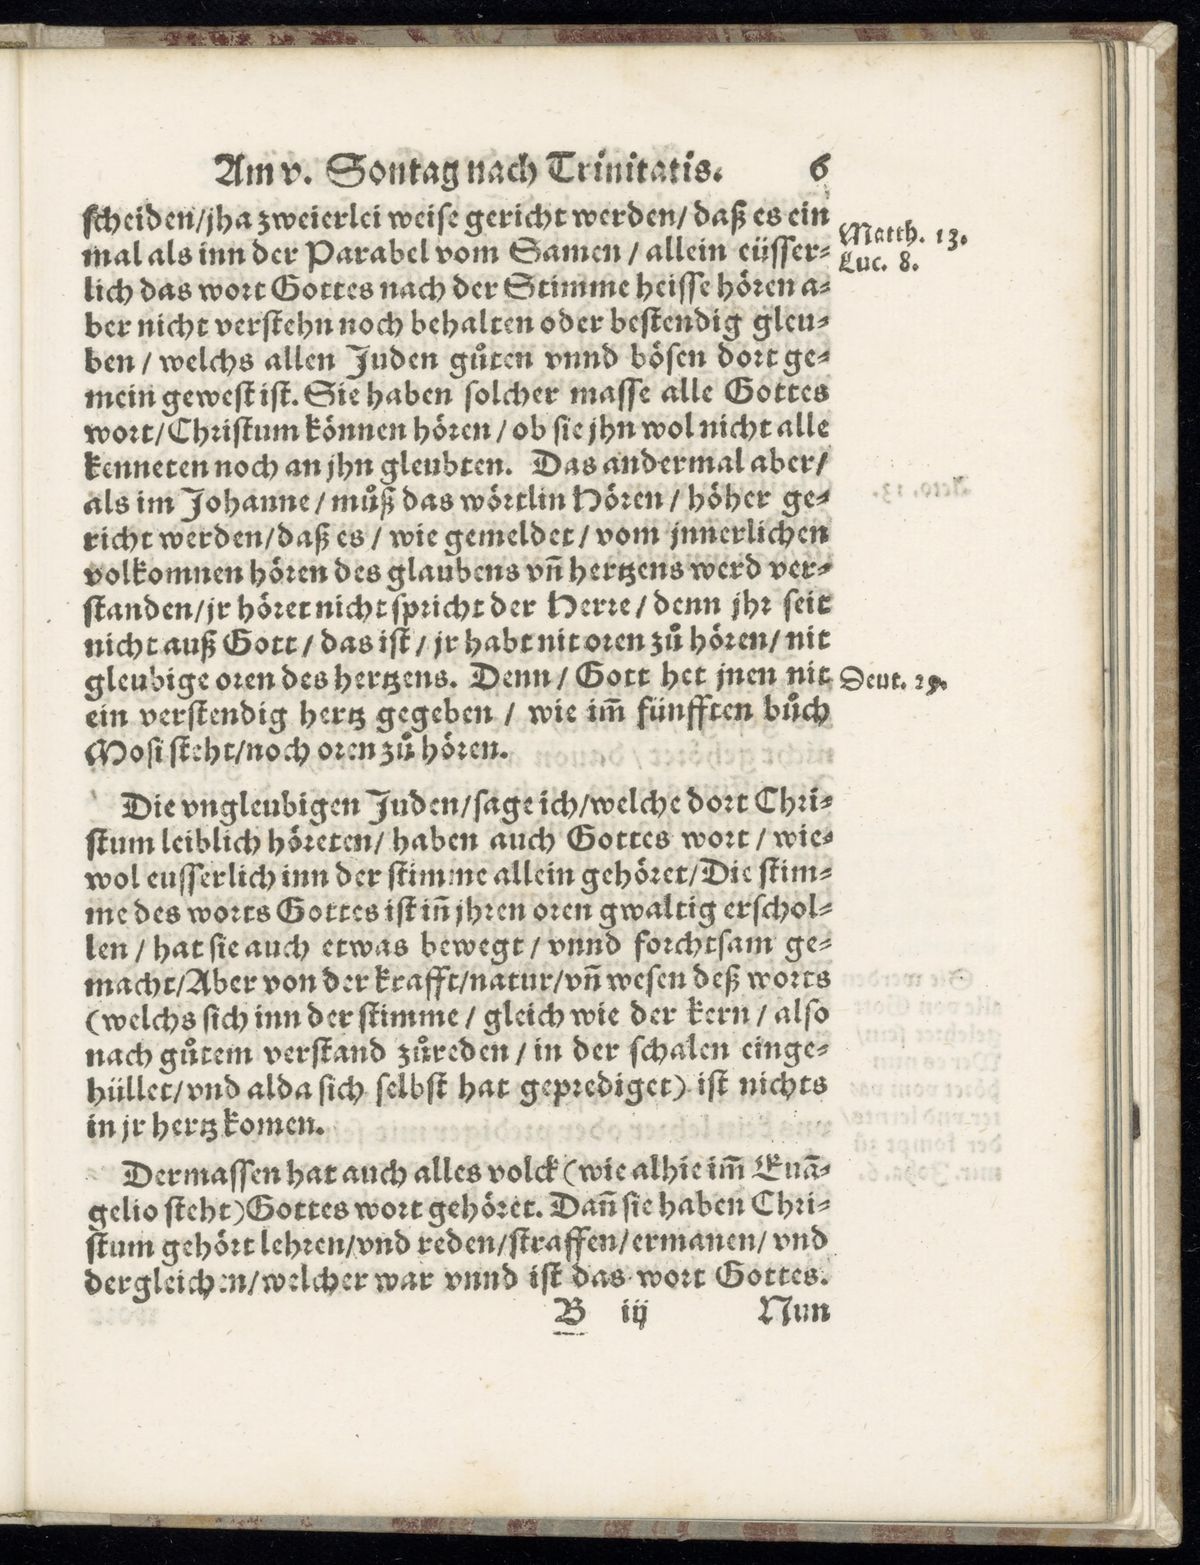 Am v. Sontag nach Trinitatis. 6
scheiden/jha zweierlei weise gericht werden/ daß es ein
Matth. 13.
mal als inn der Parabel vom Samen / allein eüsser-
Luc. 8.
lich das wort Gottes nach der Stimme heisse hören a-
ber nicht verstehn noch behalten oder bestendig gleu-
ben / welchs allen Juden gůten vnnd bösen dort ge-
mein gewest ist. Sie haben solcher masse alle Gottes
wort/Christum können hören / ob sie jhn wol nicht alle
kenneten noch an jhn gleubten. Das andermal aber/
als im Johanne / můß das wörtlin Hören / höher ge-
richt werden/daß es / wie gemeldet / vom jnnerlichen
volkomnen hören des glaubens vñ hertzens werd ver-
standen/jr höret nicht spricht der Herre / denn jhr seit
nicht auß Gott / das ist / jr habt nit oren zů hören/ nit
gleubige oren des hertzens. Denn / Gott het jnen nit
Deut. 29.
ein verstendig hertz gegeben / wie im̃ fünfften bůch
Mosi steht/noch oren zů hören.
Die vngleubigen Juden/sage ich/welche dort Chri-
stum leiblich höreten/ haben auch Gottes wort / wie-
wol eusserlich inn der stimme allein gehöret/Die stim-
me des worts Gottes ist iñ jhren oren gwaltig erschol-
len / hat sie auch etwas bewegt / vnnd forchtsam ge-
macht/Aber von der krafft/natur/vñ wesen deß worts
(welchs sich inn der stimme / gleich wie der kern / also
nach gůtem verstand zůreden / in der schalen einge-
hüllet/vnd alda sich selbst hat geprediget) ist nichts
in jr hertz komen.
Dermassen hat auch alles volck (wie alhie im̃ Euā-
gelio steht)Gottes wort gehöret. Dañ sie haben Chri-
stum gehört lehren/vnd reden/straffen/ermanen/ vnd
dergleichen/welcher war vnnd ist das wort Gottes.
B iij Nun